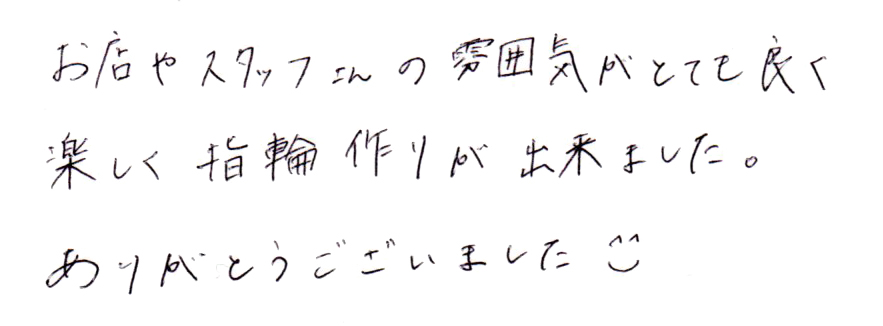 お店やスタッフさんの雰囲気がとても良く
楽しく指輪作りが出来ました。
ありがとうございました^^